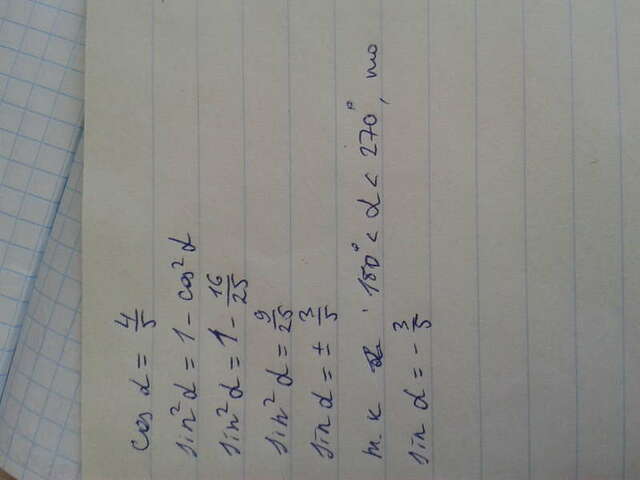 cos α = 4/5
sin² α = 1 - cos² α
sin² α = 1 - 16/25
sin² α = 9/25
sin α = ± 3/5
т.к 180° < α < 270°, то
sin α = - 3/5